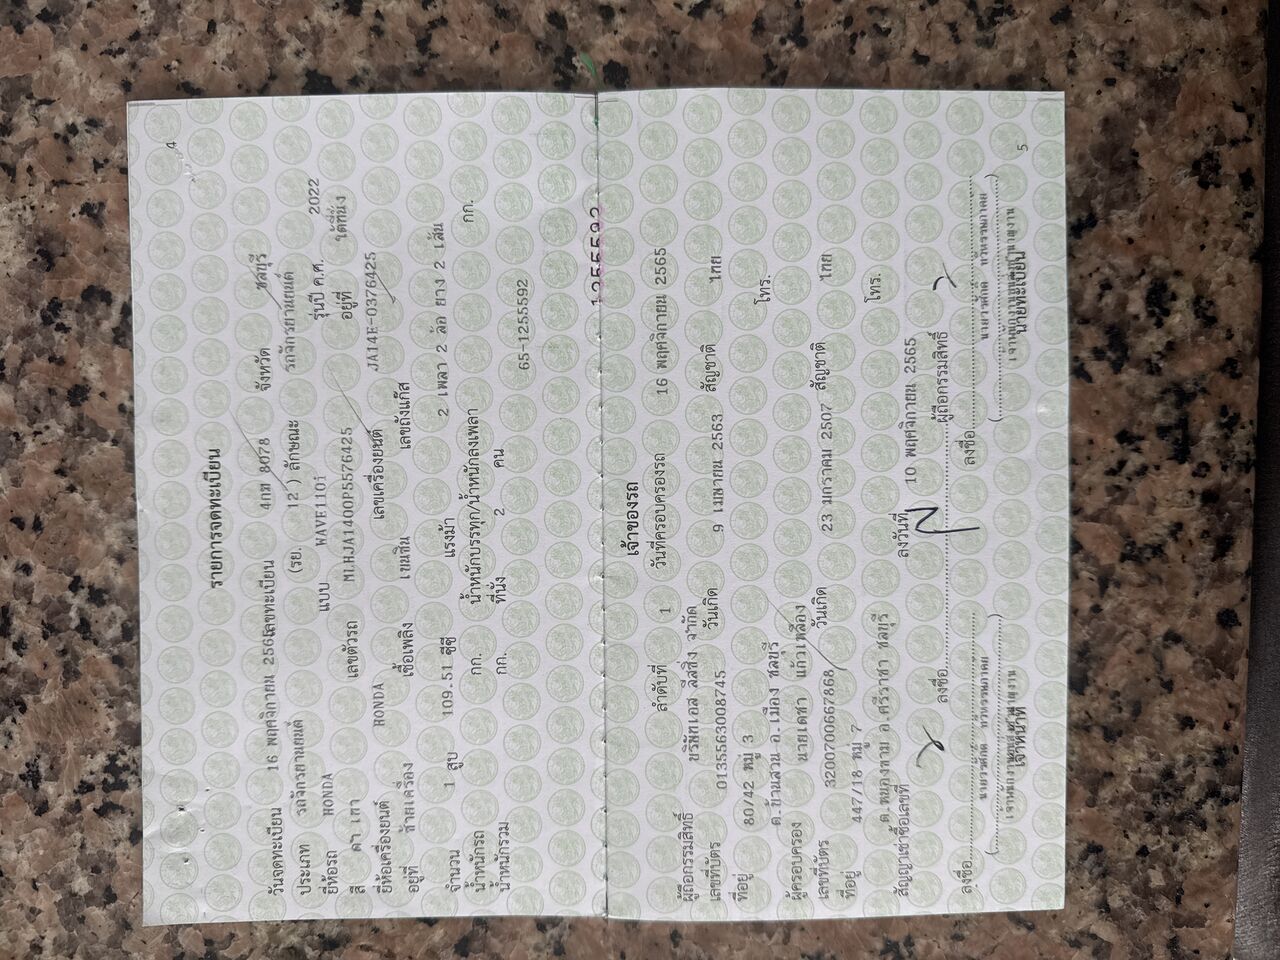 4
รายการจดทะเบียน
วันจดทะเบียน 16 พฤศจิกายน 2565 เลขทะเบียน 4กฆ 8078 จังหวัด ชลบุรี
ประเภท รถจักรยานยนต์ (รย. 12 ) ลักษณะ รถจักรยานยนต์
ยี่ห้อรถ HONDA แบบ WAVE110i รุ่นปี ค.ศ. 2022
สี ดำ เทา เลขตัวรถ MLHJA1400P5576425 อยู่ที่ ใต้ที่นั่ง
ยี่ห้อเครื่องยนต์ HONDA เลขเครื่องยนต์ JA14E-0376425
อยู่ที่ ซ้ายเครื่อง เชื้อเพลิง เบนซิน เลขถังแก๊ส
จำนวน 1 สูบ 109.51 ซีซี แรงม้า 2 เพลา 2 ล้อ ยาง 2 เส้น
น้ำหนักรถ กก. น้ำหนักบรรทุก/น้ำหนักลงเพลา กก.
น้ำหนักรวม กก. ที่นั่ง 2 คน 65-1255592
1255592
เจ้าของรถ
ลำดับที่ 1 วันที่ครอบครองรถ 16 พฤศจิกายน 2565
ผู้ถือกรรมสิทธิ์ บริษัทเอส ลีสซิ่ง จำกัด
เลขที่บัตร 0135563008745 วันเกิด 9 เมษายน 2563 สัญชาติ ไทย
ที่อยู่ 80/42 หมู่ 3
ต.บ้านสวน อ.เมือง ชลบุรี โทร.
ผู้ครอบครอง นายเดหา แก้วเหลือง
เลขที่บัตร 3200700667868 วันเกิด 23 มกราคม 2507 สัญชาติ ไทย
ที่อยู่ 447/18 หมู่ 7
ต.หนองขาม อ.ศรีราชา ชลบุรี โทร.
สัญญาเช่าซื้อเลขที่ ลงวันที่ 10 พฤศจิกายน 2565
ลงชื่อ ผู้ถือกรรมสิทธิ์
ลงชื่อ ลงชื่อ
เจ้าหน้าที่ นายทะเบียน
5